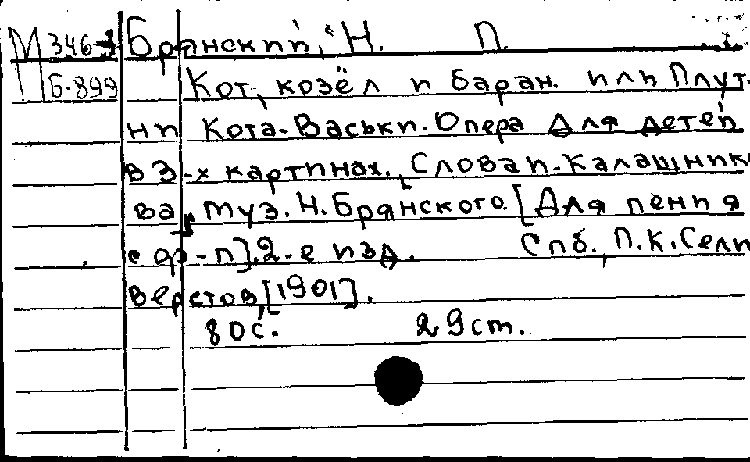 М 346-3 Брянский, Н. П.
Б-899 Кот, козёл и баран. или Плут-
ни Кота-Васьки. Опера для детей
в 3-х картинах. Слова П. Калашник
ва, муз. Н. Брянского. [Для пения
с ф-п]. 2-е изд. Спб., П. К. Сели
верстов, [1901].
80 с. 29 ст.